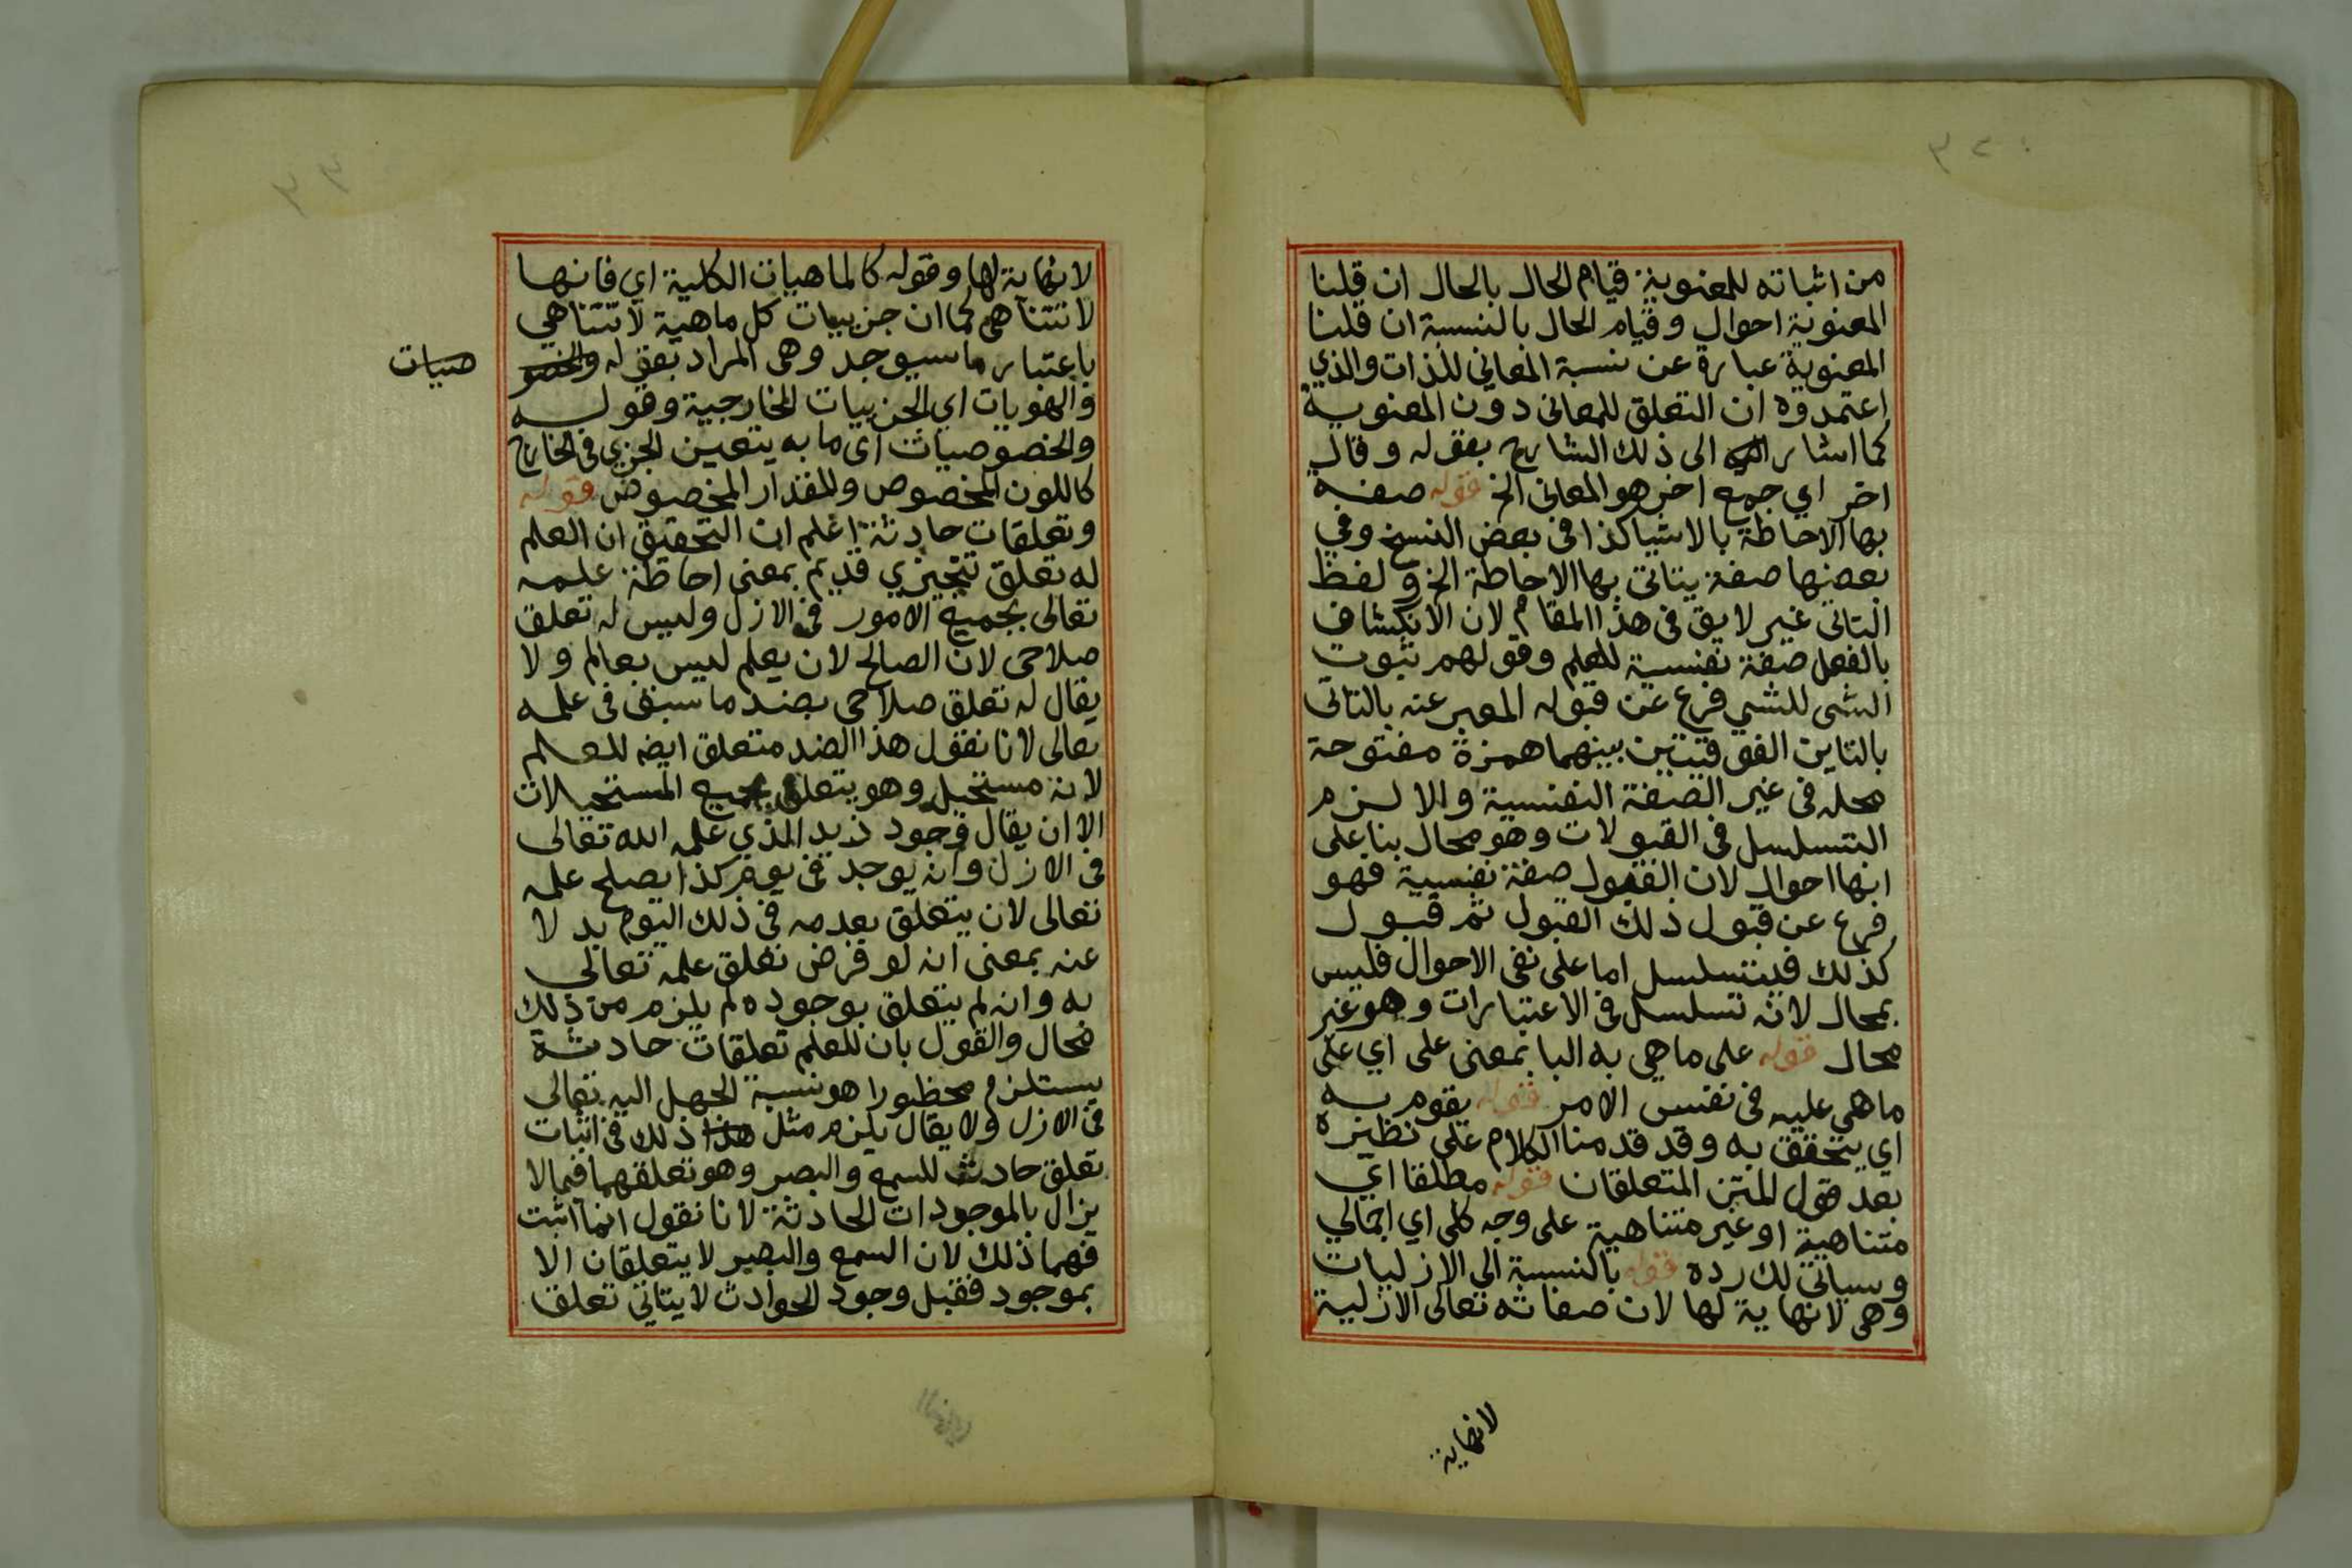 من اثباته للمعنوية قيام الحال بالحال ان قلنا
المعنوية احوال وقيام الحال بالنسبة ان قلنا
المعنوية عبارة عن نسبة المعاني للذات والذي
اعتمدوه ان التعلق للمعاني دون المعنوية
كما اشار الى ذلك الشارح بقوله وقال
اخر اي جمع اخر هو المعاني الخ قوله صفة
بها الاحاطة بالاشياكذا في بعض النسخ وفي
بعضها صفة يتاتى بها الاحاطة الخ ولفظ
التاتي غير لايق في هذا المقام لان الانكشاف
بالفعل صفة نفسية للعلم وقولهم ثبوت
الشي للشي فرع عن قبوله المعبر عنه بالتاتي
بالتاين الفوقيتين بينهما همزة مفتوحة
محله في غير الصفة النفسية والا لزم
التسلسل في القبولات وهو محال بنا على
انها احوال لان القبول صفة نفسية فهو
فرع عن قبول ذلك القبول ثم قبول
كذلك فيتسلسل اما على نفى الاحوال فليس
بمحال لانه تسلسل في الاعتبارات وهو غير
محال قوله على ما هي به البا بمعنى على اي على
ما هي عليه في نفس الامر قوله يقوم به
اي يتحقق به وقد قدمنا الكلام على نظيره
بعد قول المتن المتعلقان قوله مطلقا اي
متناهية او غير متناهية على وجه كلي اي اجمالي
وسياتي لك رده قوله بالنسبة الى الازليات
وهي لانهاية لها لان صفاته تعالى الازلية
لانهاية
لانهاية لها وقوله كالماهيات الكلية اي فانها
لا تتناهى كما ان جزييات كل ماهية لا تتناهي
باعتبار ما سيوجد وهي المراد بقوله والخصو
صيات
والهويات اي الجزييات الخارجية وقوله
والخصوصيات اى ما به يتعين الجزي في الخارج
كاللون المخصوص والمقدار المخصوص قوله
وتعلقات حادثة اعلم ان التحقيق ان العلم
له تعلق تنجيزي قديم بمعنى احاطة علمه
تعالى بجميع الامور في الازل وليس له تعلق
صلاحي لان الصالح لان يعلم ليس بعالم ولا
يقال له تعلق صلاحي بضد ما سبق في علمه
تعالى لانا نقول هذا الضد متعلق ايضه للعلم
لانه مستحيل وهو يتعلق بجميع المستحيلات
الا ان يقال وجود زيد الذي علم الله تعالى
في الازل وانه يوجد في يوم كذا يصلح علمه
تعالى لان يتعلق بعدمه في ذلك اليوم بدلا
عنه بمعنى انه لو فرض تعلق علمه تعالى
به وانه لم يتعلق بوجوده لم يلزم من ذلك
محال والقول بان للعلم تعلقات حادثة
يستلزم محظورا هو نسبة الجهل اليه تعالى
في الازل ولا يقال يلزم مثل هذا ذلك في اثبات
تعلق حادث للسمع والبصر وهو تعلقهما فيما لا
يزال بالموجودات الحادثة لانا نقول انما اثبت
فهما ذلك لان السمع والبصر لا يتعلقان الا
بموجود فقبل وجود الحوادث لا يتاتى تعلق